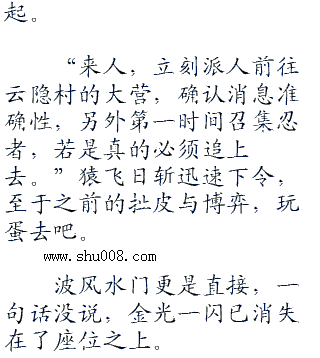 起。
“来人，立刻派人前往
云隐村的大营，确认消息准
确性，另外第一时间召集忍
者，若是真的必须追上
去。”猿飞日斩迅速下令，
至于之前的扯皮与博弈，玩
蛋去吧。
www.shu008.com
波风水门更是直接，一
句话没说，金光一闪已消失
在了座位之上。